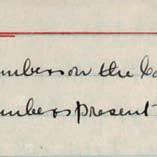 umbers on the
umbers present